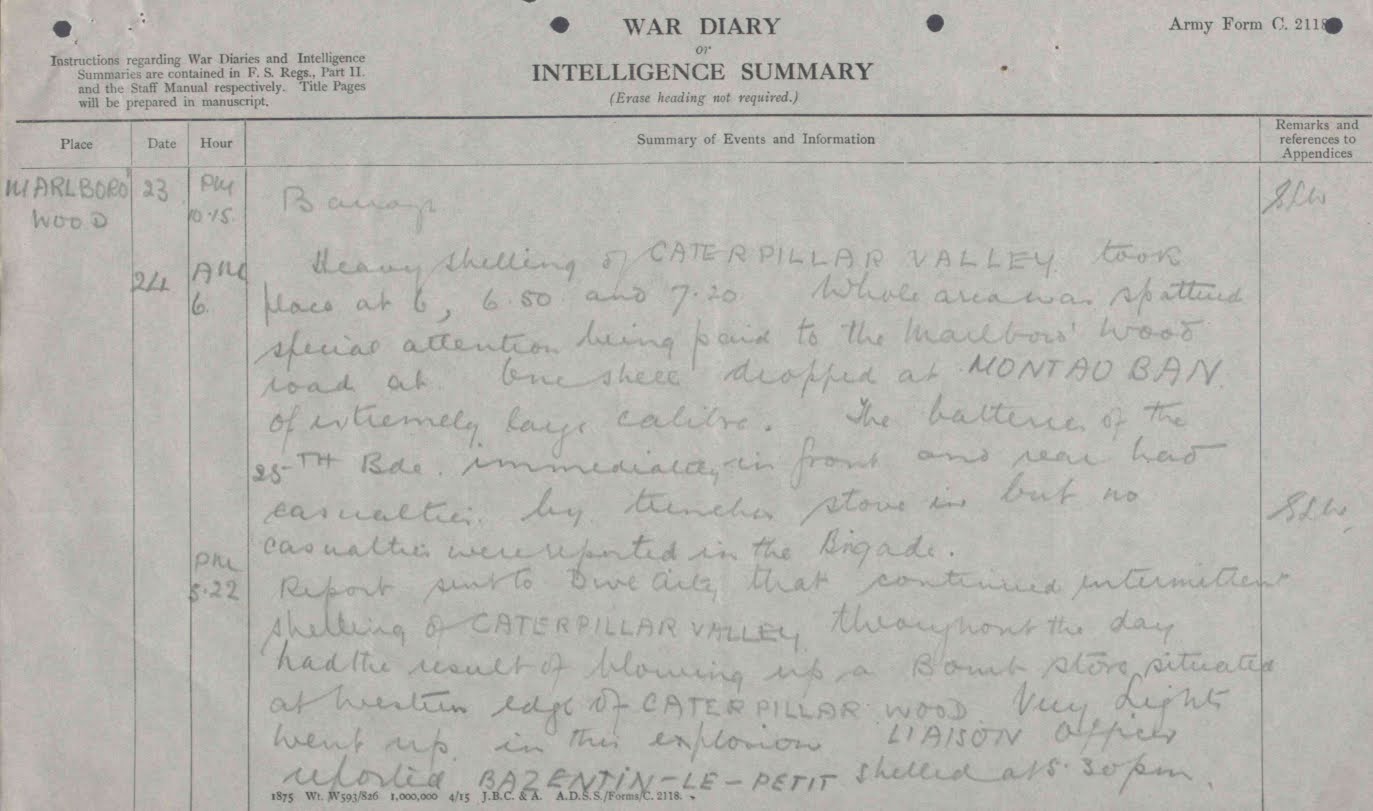 WAR DIARY
or
INTELLIGENCE SUMMARY
(Erase heading not required.)
Army Form C. 2118
Instructions regarding War Diaries and Intelligence
Summaries are contained in F. S. Regs., Part II.
and the Staff Manual respectively. Title Pages
will be prepared in manuscript.
Place
Date
Hour
Summary of Events and Information
Remarks and
references to
Appendices
MARLBORO'
WOOD
23
PM
10.15.
Barrage
24
AM
6.
Heavy shelling of CATERPILLAR VALLEY took
place at 6, 6.50 and 7.20. Whole area was spattered
special attention being paid to the Marlboro' Wood
road at One shell dropped at MONTAUBAN
of extremely large calibre. The batteries of the
25TH Bde. immediately in front and rear had
casualties. by trenches stove in but no
casualties were reported in the Brigade.
PM
5.22
Report sent to that continued intermittent
shelling of CATERPILLAR VALLEY throughout the day
had the result of blowing up a Bomb store situated
at Western edge of CATERPILLAR WOOD Very Lights
went up in this explosion LIAISON Officer
reported BAZENTIN-LE-PETIT shelled at 5.30 pm.
1875 Wt. W593/826 1,000,000 4/15 J.B.C. & A. A.D.S.S./Forms/C. 2118.